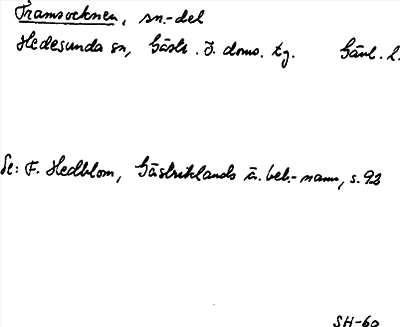 Framsocknen, sn.-del
Hedesunda sn, Gästr. J. doms. tg. Gävl. l.
Se: F. Hedblom, Gästriklands ä. beb.-namn, s. 92
SH-60